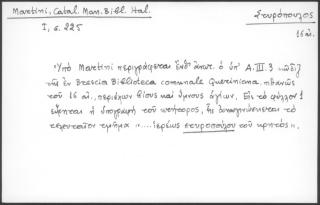 Martini, Catal. Man. Bibl. Ital.
I, σ. 225
Σταυρόπουλος
16 αἰ.
Ὑπὸ Martini περιγράφεται ἐνθ' ἀνωτ. ὁ ὑπ' A. III. 3 κῶδιξ
τῆς ἐν Brescia Biblioteca comunale Queriniana, πιθανῶς
τοῦ 16 αἰ., περιέχων βίους καὶ ὕμνους ἁγίων. Εἰς τὸ φύλλον 1
εὕρηται ἡ ὑπογραφὴ τοῦ κτήτορος, ἧς ἀναγινώσκεται τὸ
τελευταῖον τμῆμα «.... ἱερέως σταυροπούλου τοῦ κρητός».